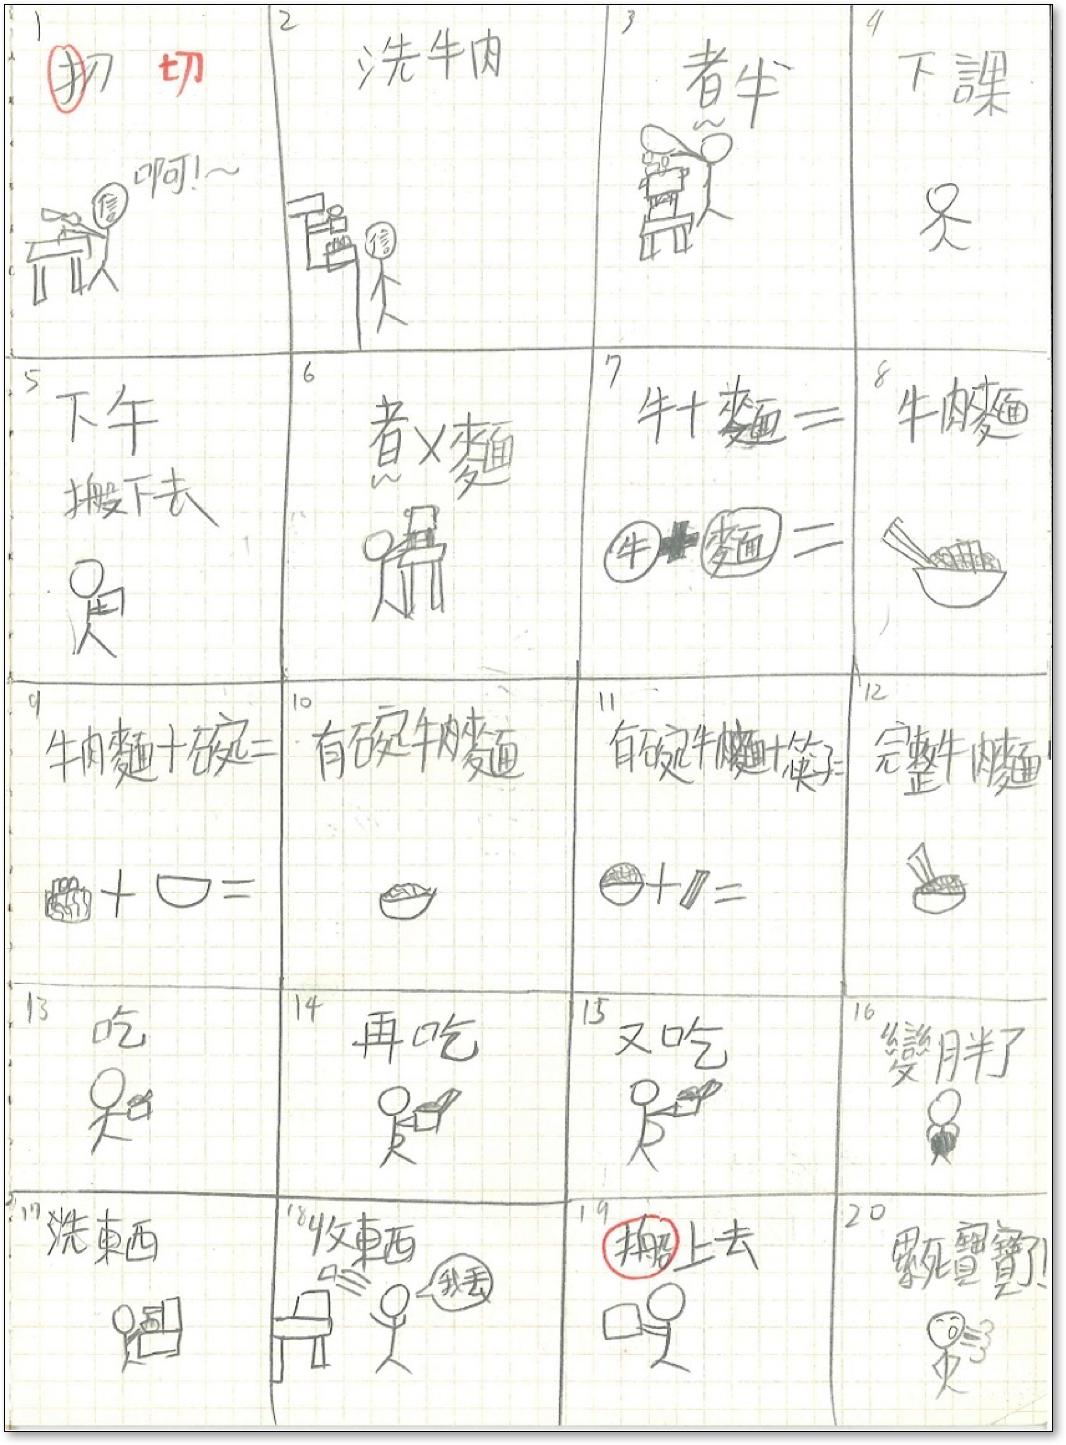 1
扨 切
啊!~
信
2
洗牛肉
信
3
煮牛
4
下課
5
下午
搬下去
6
煮X麵
7
牛+麵=
牛+麵=
8
牛肉麵
9
牛肉麵+碗=
+ =
10
有碗牛肉麵
11
有碗牛肉麵+筷子=
+ =
12
完整牛肉麵!
13
吃
14
再吃
15
又吃
16
變胖了
17
洗東西
18
收東西
我丟
19
搬上去
20
累死寶寶了!